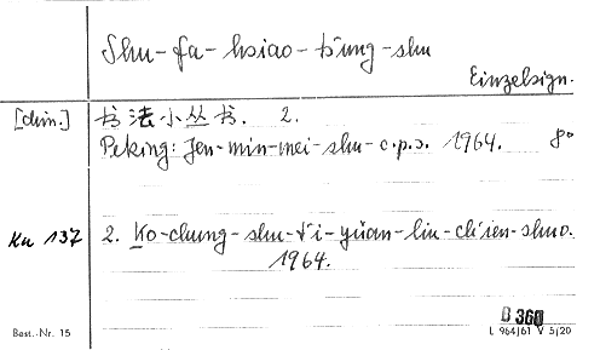 Shu-fa-hsiao-ts'ung-shu
Einzelsign.
[chin.] 书法小丛书. 2.
Peking: Jen-min-mei-shu-c.p.s. 1964. 8°
Ku 137 2. Ko-chung-shu-t'i-yüan-liu-ch'ien-shuo.
1964.
B 360
Best.-Nr. 15 L 964/61 V 5/20